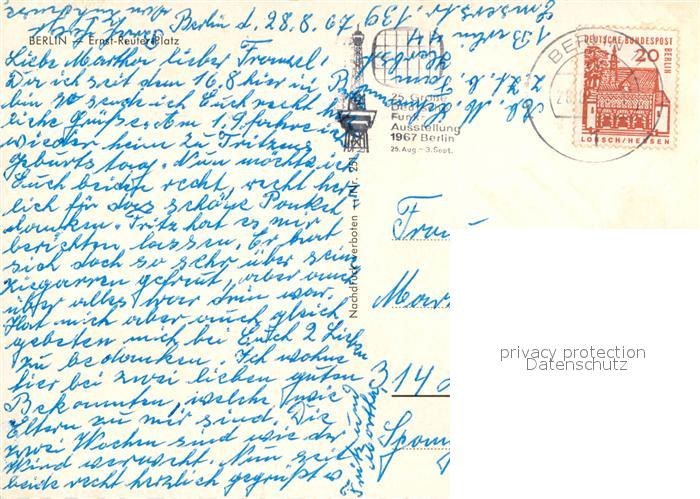 Berlin d. 28.8.67
BERLIN — Ernst-Reuter-Platz
Liebe Martha lieber Franzel!
Da ich seit dem 16.8 hier in Berlin
bin so sende ich Euch recht herz
liche Grüße. Am 1.9. fahre ich
wieder heim zu Fritzens
Geburtstag. Nun möchte ich
Euch beide recht, recht herz
lich für das schöne Packet
danken. Fritz hat es mir
berichten, lassen. Er hat
sich doch so sehr über seine
Zigarren gefreut, aber auch
über alles was drin war.
Hat mich aber auch gleich
gebeten mich bei Euch 2 Lieben
zu bedanken. Ich wohne
hier bei zwei lieben guten
Bekannten, welche wie
Eltern zu mir sind. Die
zwei Wochen sind wie der
Wind verweht. Nun seit
beide recht herzlich gegrüßt v.
Fritz und
Martha
z. Zt. b. Fam.
1 Berlin 44
139
25. Große
Deutsche
Funk-
Ausstellung
1967 Berlin
25. Aug. - 3. Sept.
BERLIN
28.
DEUTSCHE BUNDESPOST
BERLIN
20
LORSCH/HESSEN
Nachdruck verboten
Nr. 251
Frau
314
privacy protection
Datenschutz